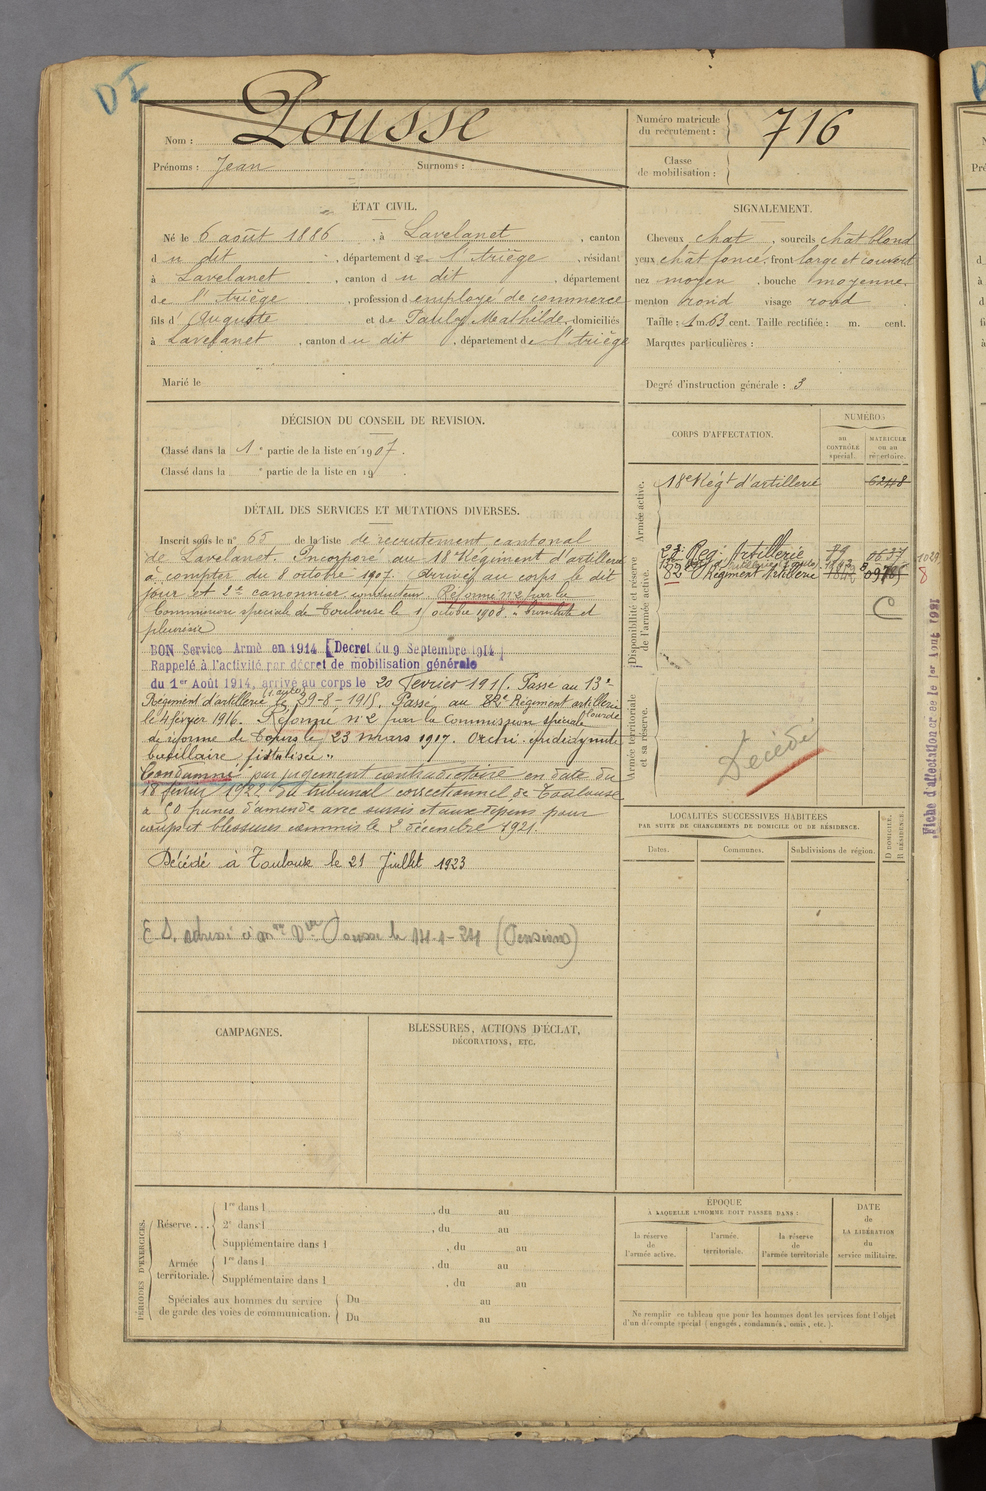 DI
Nom : Pousse
Prénoms : Jean Surnoms :
Numéro matricule du recrutement : 716
Classe de mobilisation :
ÉTAT CIVIL.
Né le 6 août 1886, à Lavelanet, canton
du dit, département de l'Ariège, résidant
à Lavelanet, canton du dit, département
de l'Ariège, profession d employé de commerce
fils d' Auguste et de Pauly Mathilde, domiciliés
à Lavelanet, canton du dit, département de l'Ariège
Marié le
SIGNALEMENT.
Cheveux chat, sourcils chât blond
yeux chât foncé, front large et couvert
nez moyen, bouche moyenne
menton rond visage rond
Taille : 1 m. 63 cent. Taille rectifiée : m. cent.
Marques particulières :
Degré d'instruction générale : 3
DÉCISION DU CONSEIL DE REVISION.
Classé dans la 1e partie de la liste en 1907.
Classé dans la e partie de la liste en 19
CORPS D'AFFECTATION.
NUMÉROS
au CONTRÔLE spécial.
MATRICULE ou au répertoire.
Armée active.
18e Régt d'artillerie 62418
Disponibilité et réserve de l'armée active.
23e Reg: Artillerie 79 0637
82 Régiment Artillerie
1029
8
C
Armée territoriale et sa réserve.
Décédé
Fiche d'affectation créée le 1er Août 1921
DÉTAIL DES SERVICES ET MUTATIONS DIVERSES.
Inscrit sous le n° 65 de la liste de recrutement cantonal
de Lavelanet. Incorporé au 18e Régiment d'artillerie
à compter du 8 octobre 1907. Arrivé au corps le dit
jour et 2e canonnier conducteur. Réformé n° 2 par la
Commission spéciale de Toulouse le octobre 1908.
pleurésie
BON Service Armé en 1914 [Decret du 9 Septembre 1914]
Rappelé à l'activité par décret de mobilisation générale
du 1er Août 1914, arrivé au corps le 20 Fevrier 1915. Passé au 13e
Régiment d'artillerie le 29-8-1915. Passé au 82e Régiment artillerie lourde
le 4 février 1916. Réformé n° 2 par la Commission spéciale
de réforme de Tours le 23 mars 1917. Orchi épididymite
bacillaire, fistulisée".
Condamné par jugement contradictoire en date du
18 février 1922 du tribunal correctionnel de Toulouse
à 50 francs d'amende avec sursis et aux dépens pour
coups et blessures commis le 2 décembre 1921.
Décédé à Toulouse le 21 Juillet 1923
E S. adressé à Mme Vve Pousse le 14-1-24 (Pensions)
LOCALITÉS SUCCESSIVES HABITÉES
PAR SUITE DE CHANGEMENTS DE DOMICILE OU DE RÉSIDENCE.
Dates. Communes. Subdivisions de région. D DOMICILE. R RÉSIDENCE.
CAMPAGNES.
BLESSURES, ACTIONS D'ÉCLAT,
DÉCORATIONS, ETC.
PÉRIODES D'EXERCICES.
Réserve... 1re dans l , du au
2e dans l , du au
Supplémentaire dans l , du au
Armée territoriale. 1re dans l , du au
Supplémentaire dans l , du au
Spéciales aux hommes du service de garde des voies de communication. Du au
Du au
ÉPOQUE
À LAQUELLE L'HOMME DOIT PASSER DANS :
la réserve de l'armée active.
l'armée territoriale.
la réserve de l'armée territoriale
DATE de LA LIBÉRATION du service militaire.
Ne remplir ce tableau que pour les hommes dont les services font l'objet
d'un décompte spécial (engagés, condamnés, omis, etc.).